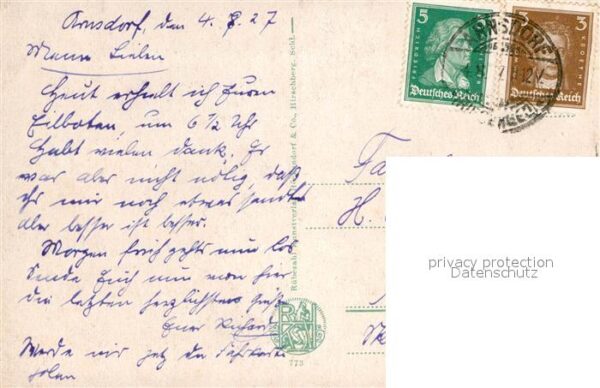 Arnsdorf, den 4. 7. 27
Meine Lieben
Heut erhielt ich Euren
Eilboten, um 6 1/2 Uhr
Habt vielen Dank. Es
war aber nicht nötig, daß
ihr mir noch etwas sendtet
aber besser ist besser.
Morgen früh gehts nun los
Sende Euch nun von hier
die letzten herzlichsten Grüße
Euer Richard
Werde mir jetz die Fahrkarte
holen
Rübezahl, Kunstverlag & Co., Hirschberg, Schl.
773
5
FRIEDRICH
Deutsches Reich
3
GOETHE
Deutsches Reich
ARNSDORF
Fa
H.
privacy protection
Datenschutz